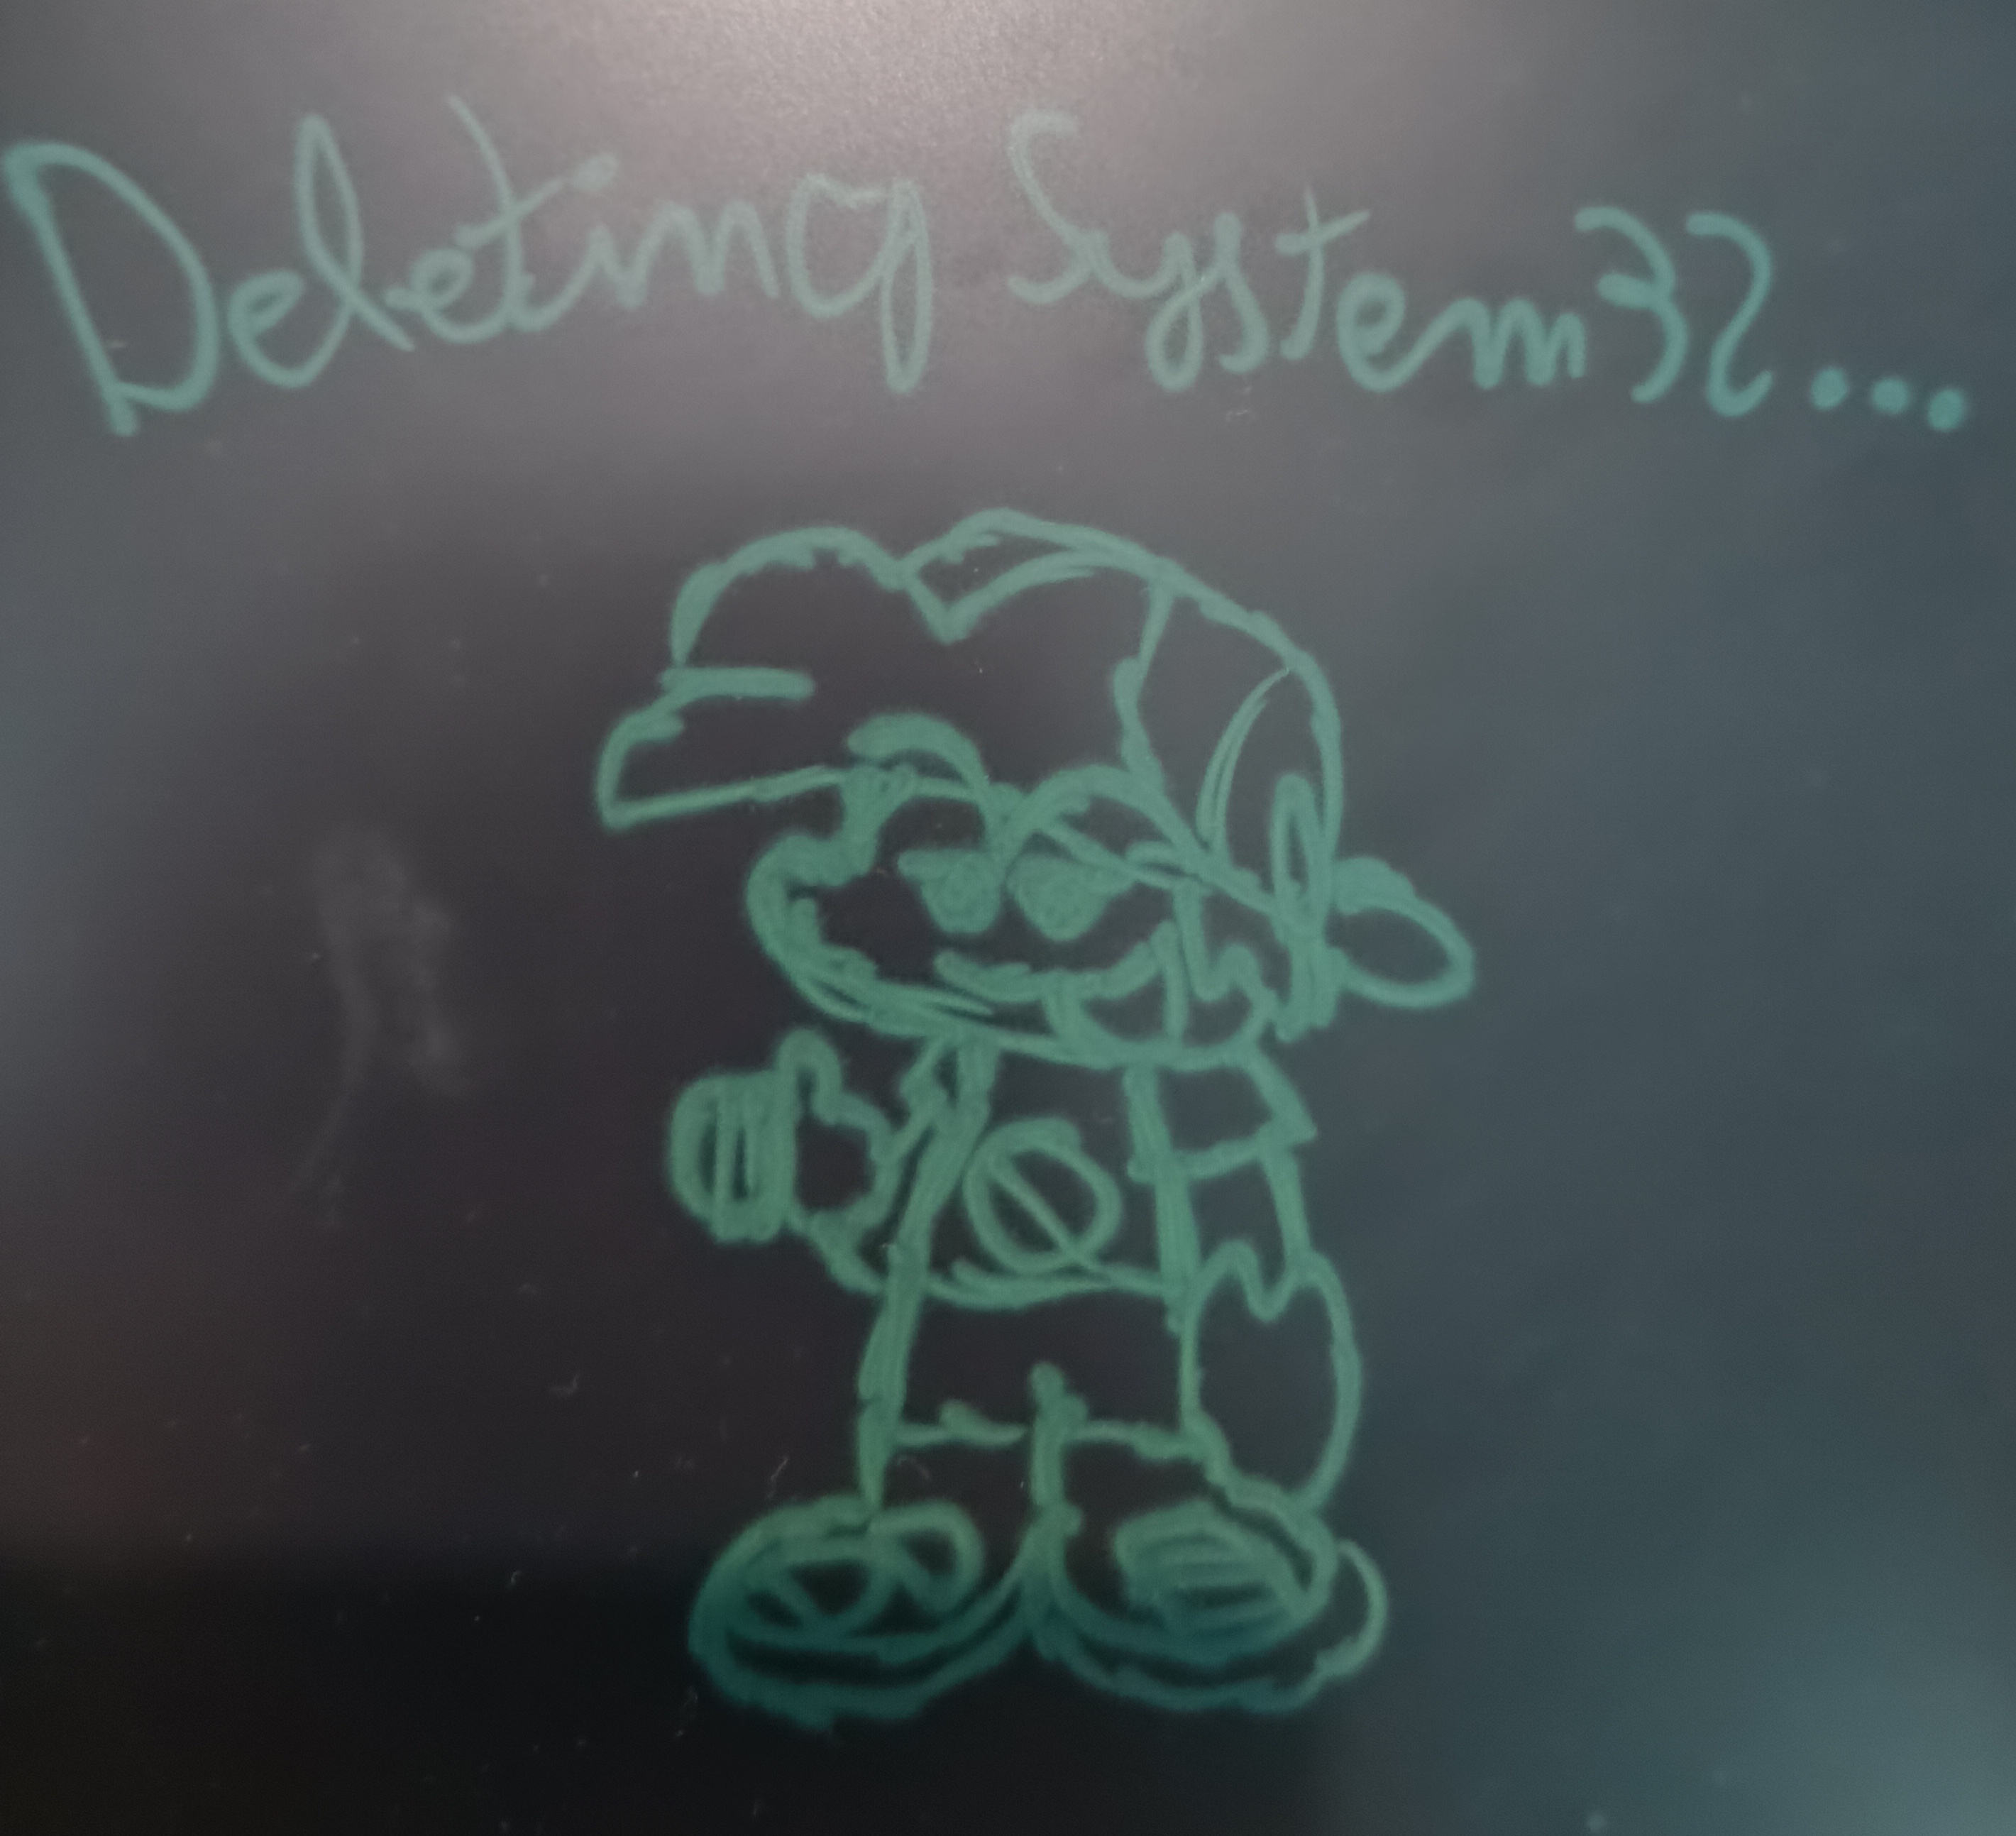 Deleting System32...